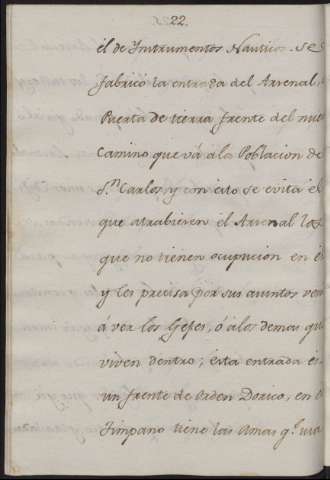 22.
el de Instrumentos Nauticos. se
fabricó la entrada del Arsenal,
Puerta de tierra, frente del nue
Camino que vá á la Poblacion de
Sn. Carlos, y con esto se evita el
que atrabiesen el Arsenal los
que no tienen ocupacion en él
y les precisa por sus asuntos ven
á ver los Gefes, ó á los demas que
viven dentro; esta entrada es
un frente de orden Dorico, en el
Timpano tiene las Armas qe.